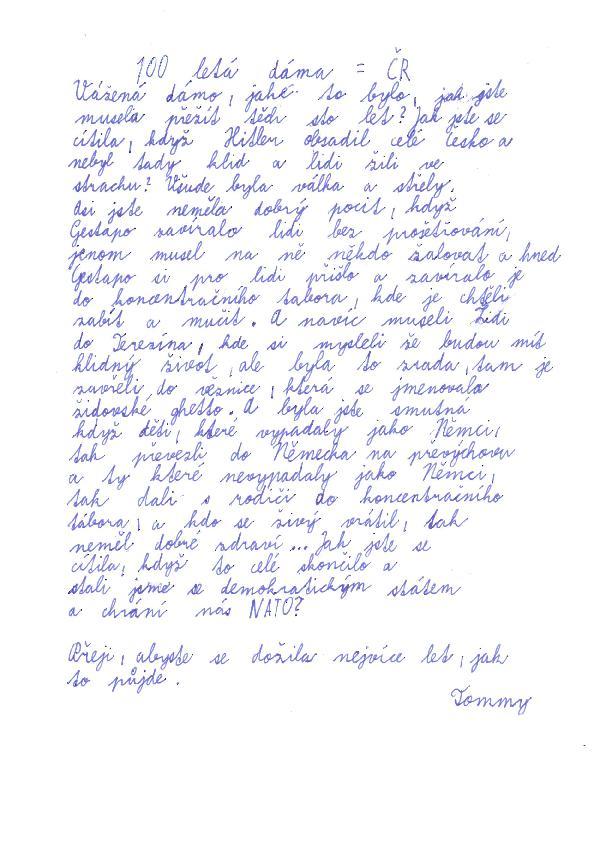 100 letá dáma = ČR
Vážená dámo, jaké to bylo, jak jste
musela přežít těch sto let? Jak jste se
cítila, když Hitler obsadil celé Česko a
nebyl tady klid a lidi žili ve
strachu? Všude byla válka a střely.
Asi jste neměla dobrý pocit, když
Gestapo zavíralo lidi bez prošetřování,
jenom musel na ně někdo žalovat a hned
Gestapo si pro lidi přišlo a zavíralo je
do koncentračního tabora, kde je chtěli
zabít a mučit. A navíc museli Židi
do Terezína, kde si mysleli že budou mít
klidný život, ale byla to zrada, tam je
zavřeli do věznice, která se jmenovala
židovské ghetto. A byla jste smutna
když děti, které vypadaly jako Němci,
tak převezli do Německa na převýchovu
a ty které nevypadaly jako Němci,
tak dali s rodiči do koncentračního
tábora, a kdo se živý vrátil, tak
neměl dobré zdraví... Jak jste se
cítila, když to celé skončilo a
stali jsme se demokratickým státem
a chrání nás NATO?
Přeji, abyste se dožila nejvíce let, jak
to půjde.
Tommy